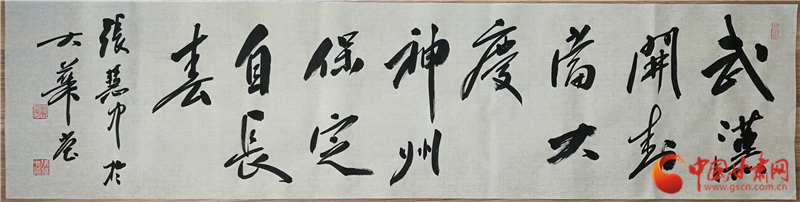 武漢
開封
當大
慶
神州
保定
自長
春
張慧中於
大華堂
中国甘肃网
www.gscn.com.cn